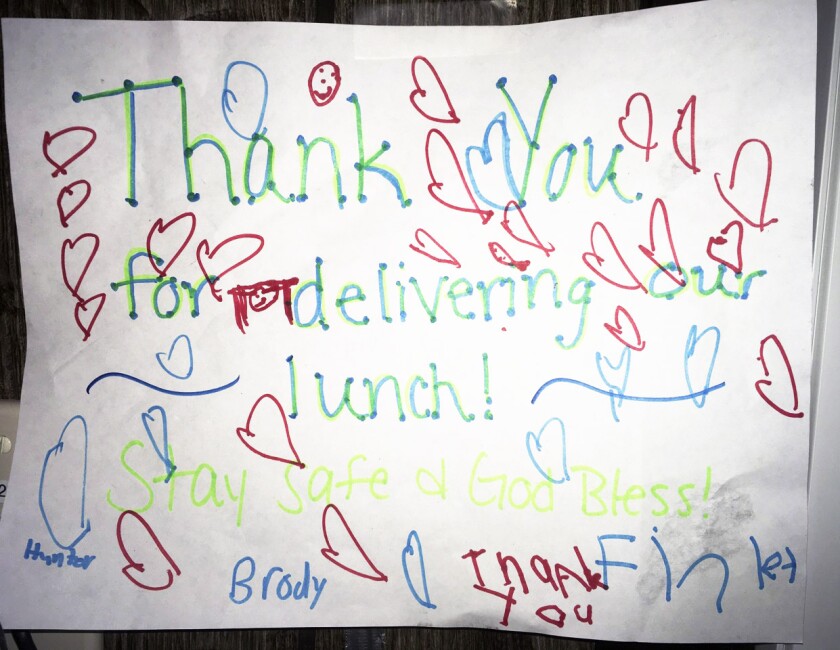 Thank You
for delivering our
lunch!
Stay Safe & God Bless!
Hunter
Brody
Thank
You
Finley